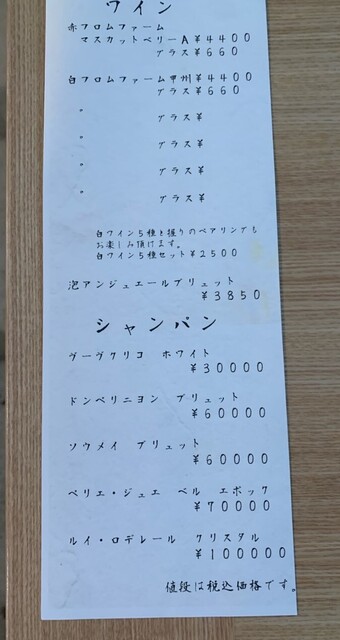 ワイン
赤フロムファーム
マスカットベリーA ¥4400
グラス ¥660
白フロムファーム甲州 ¥4400
グラス ¥660
〃 グラス ¥
〃 グラス ¥
〃 グラス ¥
〃 グラス ¥
白ワイン5種と握りのペアリングも
お楽しみ頂けます。
白ワイン5種セット ¥2500
泡アンジュエールブリュット
¥3850
シャンパン
ヴーヴクリコ ホワイト
¥30000
ドンペリニヨン ブリュット
¥60000
ソウメイ ブリュット
¥60000
ペリエ・ジュエ ベル エポック
¥70000
ルイ・ロデレール クリスタル
¥100000
値段は税込価格です。